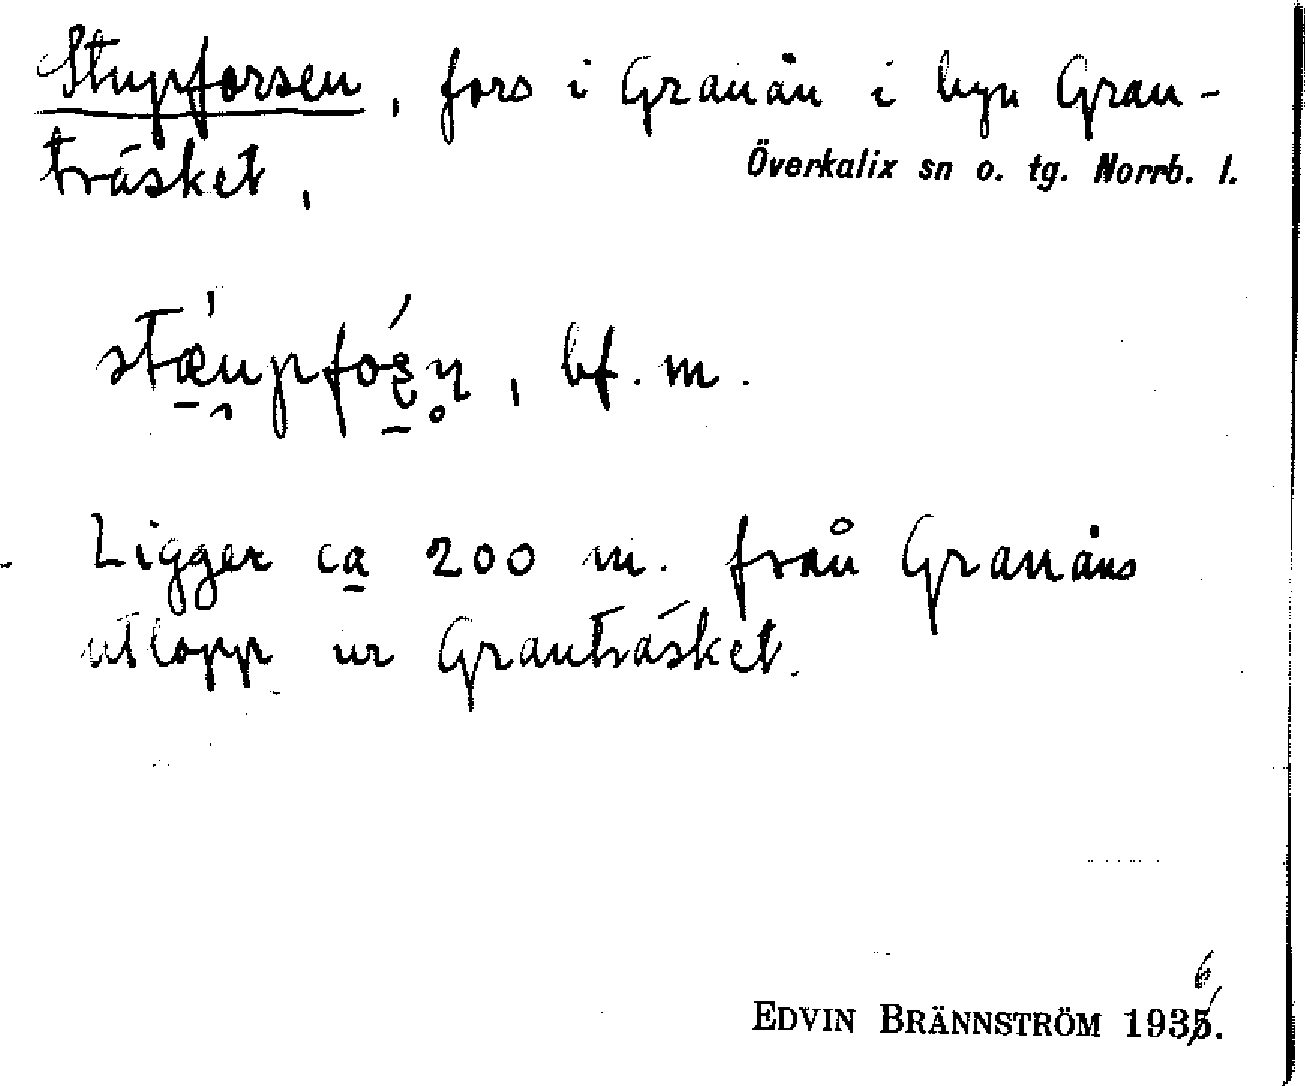 Stupforsen, fors i Granån i byn Gran-
träsket,
Överkalix sn o. tg. Norrb. l.
bf. m.
Ligger ca 200 m. från Granåns
utlopp ur Granträsket.
6
EDVIN BRÄNNSTRÖM 1935.